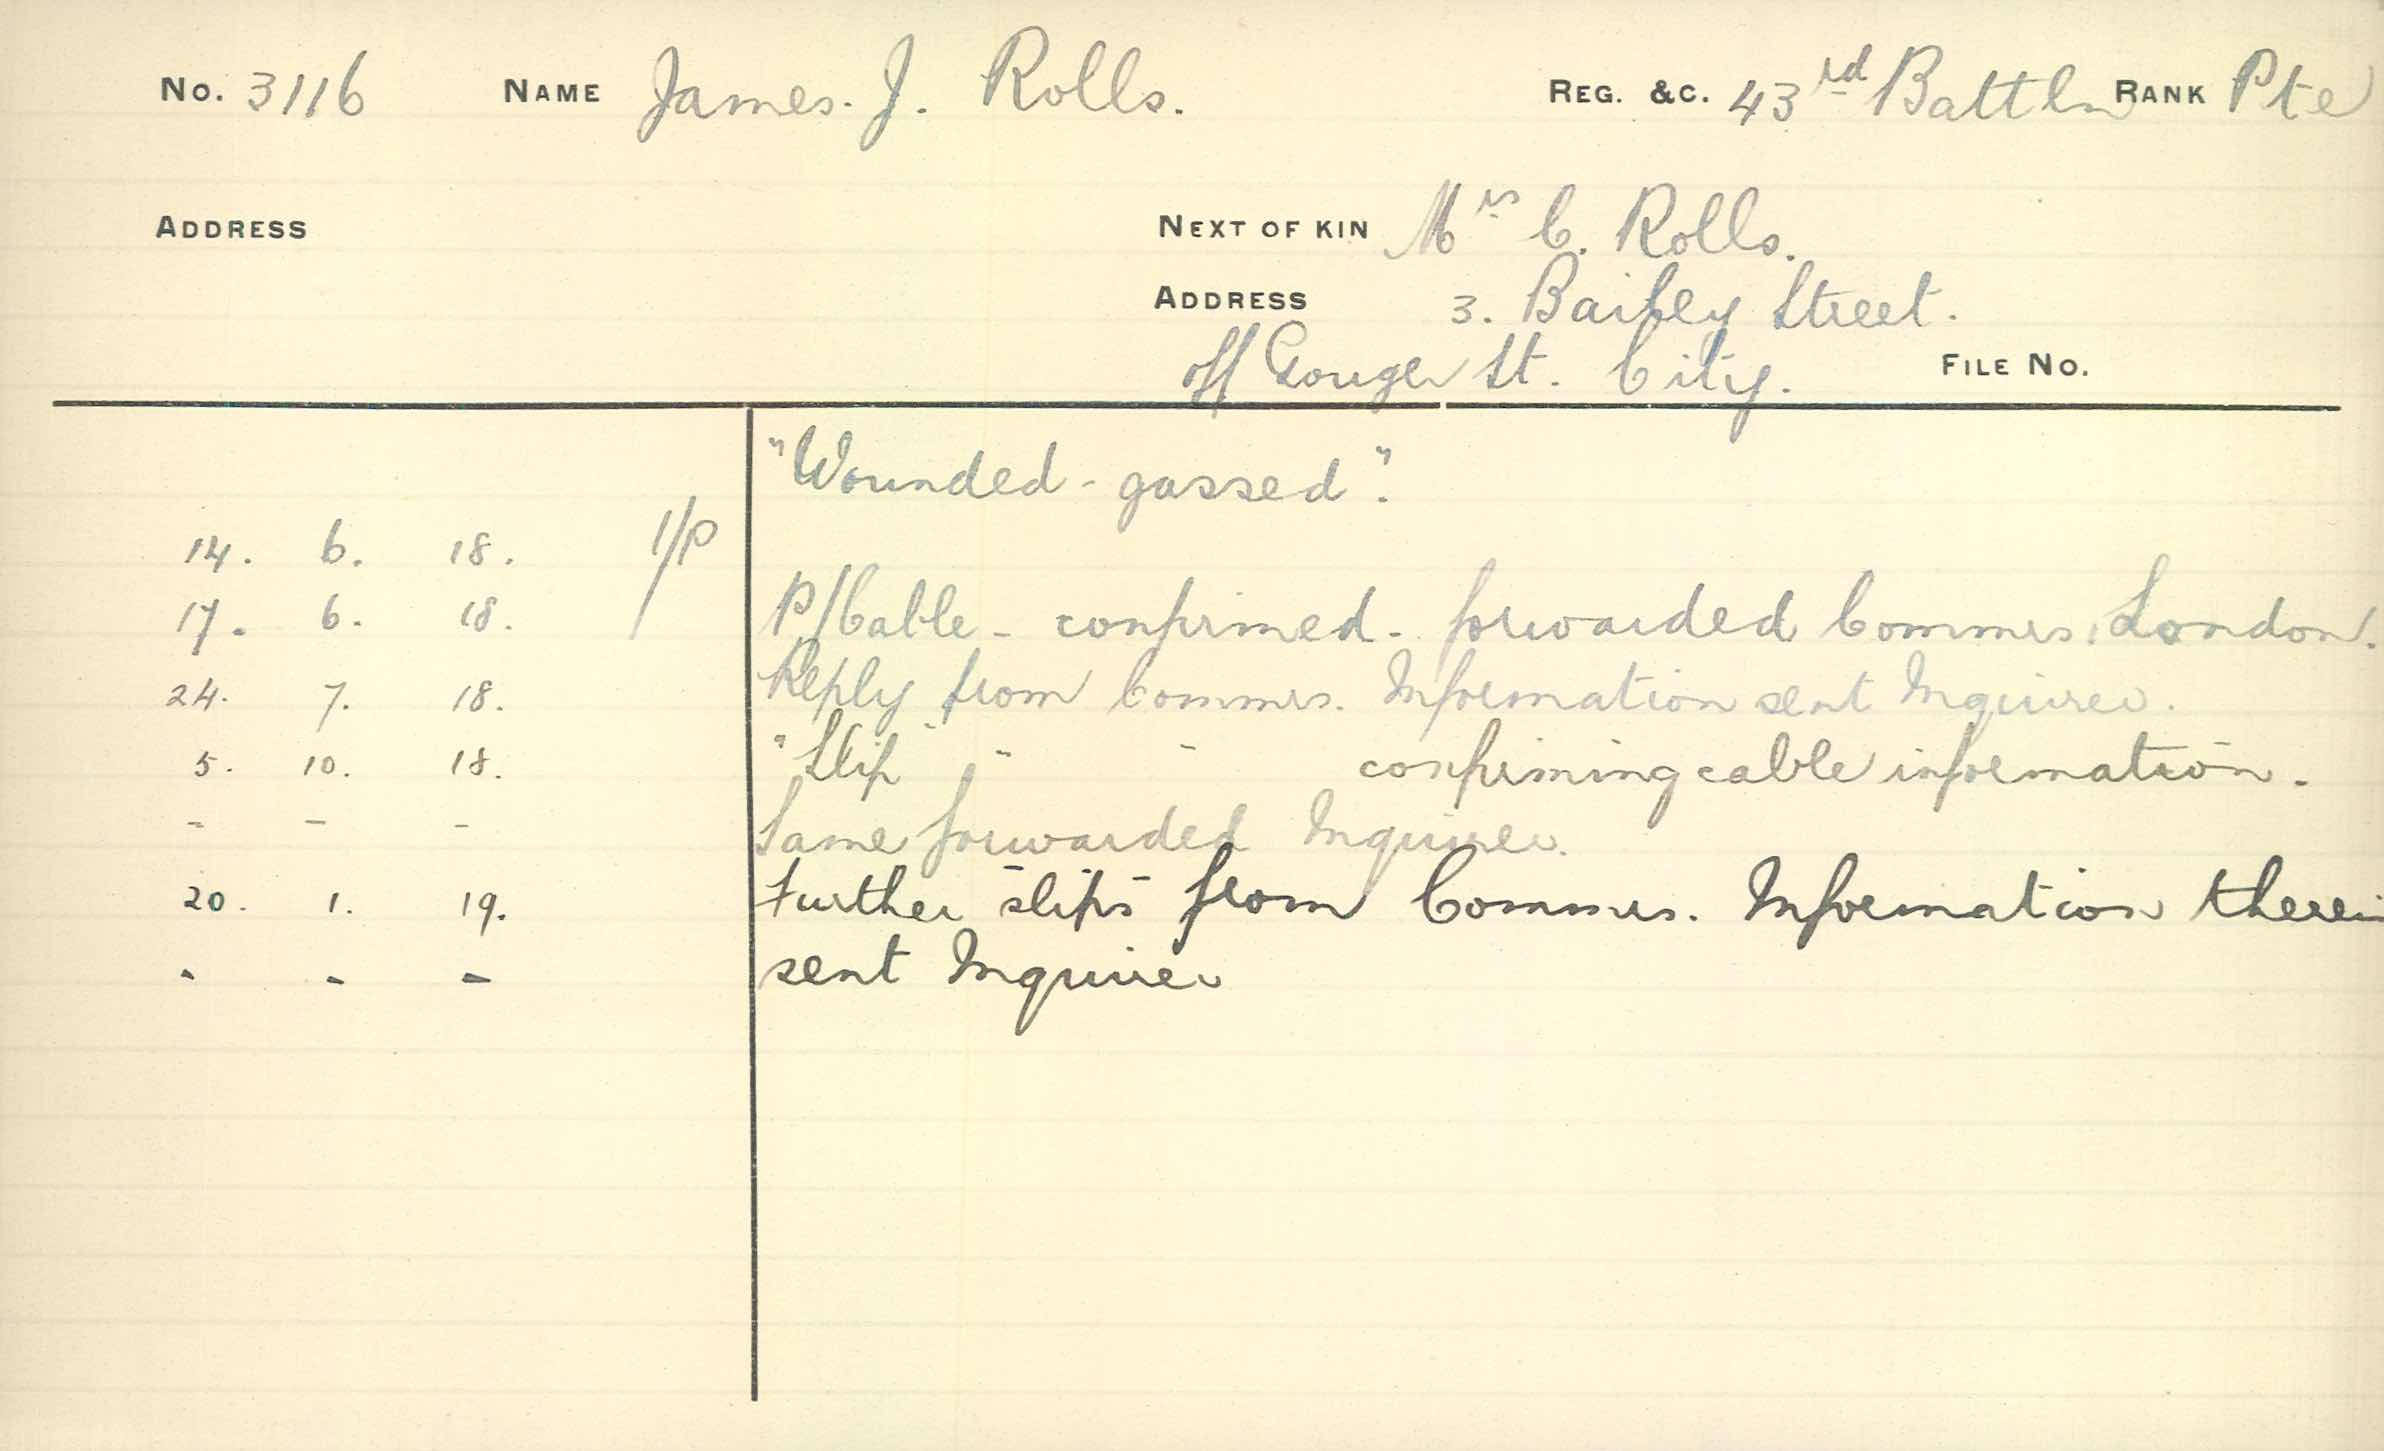 No. 3116 NAME James. J. Rolls. REG. &C. 43rd Battln RANK Pte
ADDRESS NEXT OF KIN Mrs C. Rolls.
ADDRESS 3. Bailey Street.
off Gouger St. City. FILE No.
"Wounded - gassed".
14. 6. 18. I/P
17. 6. 18. P/Cable - confirmed - forwarded Commrs. London.
24. 7. 18. Reply from Commrs. Information sent Inquirer.
5. 10. 18. "Slip" " " confirming cable information.
" " " Same forwarded Inquirer.
20. 1. 19. Further "slips" from Commrs. Information therein
" " " sent Inquirer